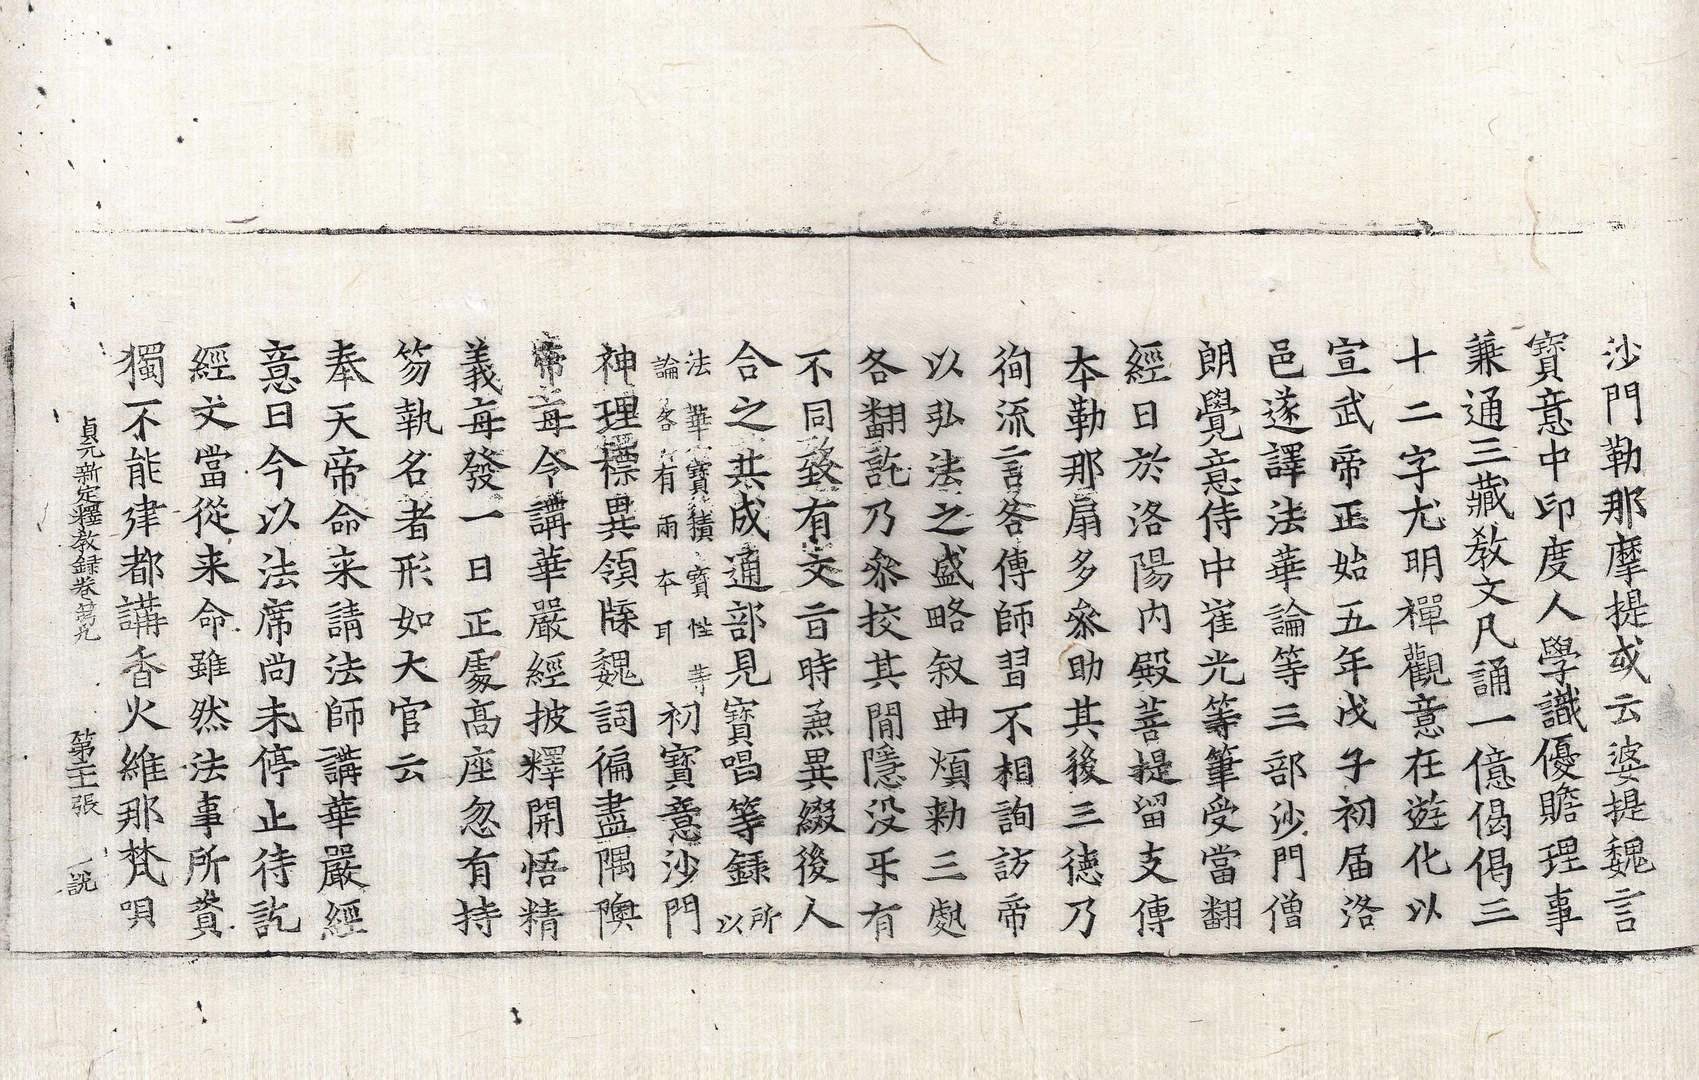 沙門勒那摩提或云婆提魏言
寶意中印度人學識優贍理事
兼通三藏教文凡誦一億偈偈三
十二字尤明禪觀意在遊化以
宣武帝正始五年戊子初届洛
邑遂譯法華論等三部沙門僧
朗覺意侍中崔光等筆受當翻
經日於洛陽内殿菩提留支傳
本勒那扇多叅助其後三德乃
徇流言各傳師習不相詢訪帝
以弘法之盛略叙曲煩勑三處
各翻訖乃叅挍其間隱没㸦有
不同致有文旨時兼異綴後人
合之共成通部見寶唱等錄所以
法華寶積寶性等
論各有兩本耳初寶意沙門
神理標異領牒魏詞徧盡隅隩
帝每令講華嚴經披釋開悟精
義每發一日正處高座忽有持
笏執名者形如大官云
奉天帝命来請法師講華嚴經
意曰今以法席尚未停止待訖
經文當從来命雖然法事所資
獨不能建都講香火維那梵唄
貞元新定釋教録卷第九 第二十張 說